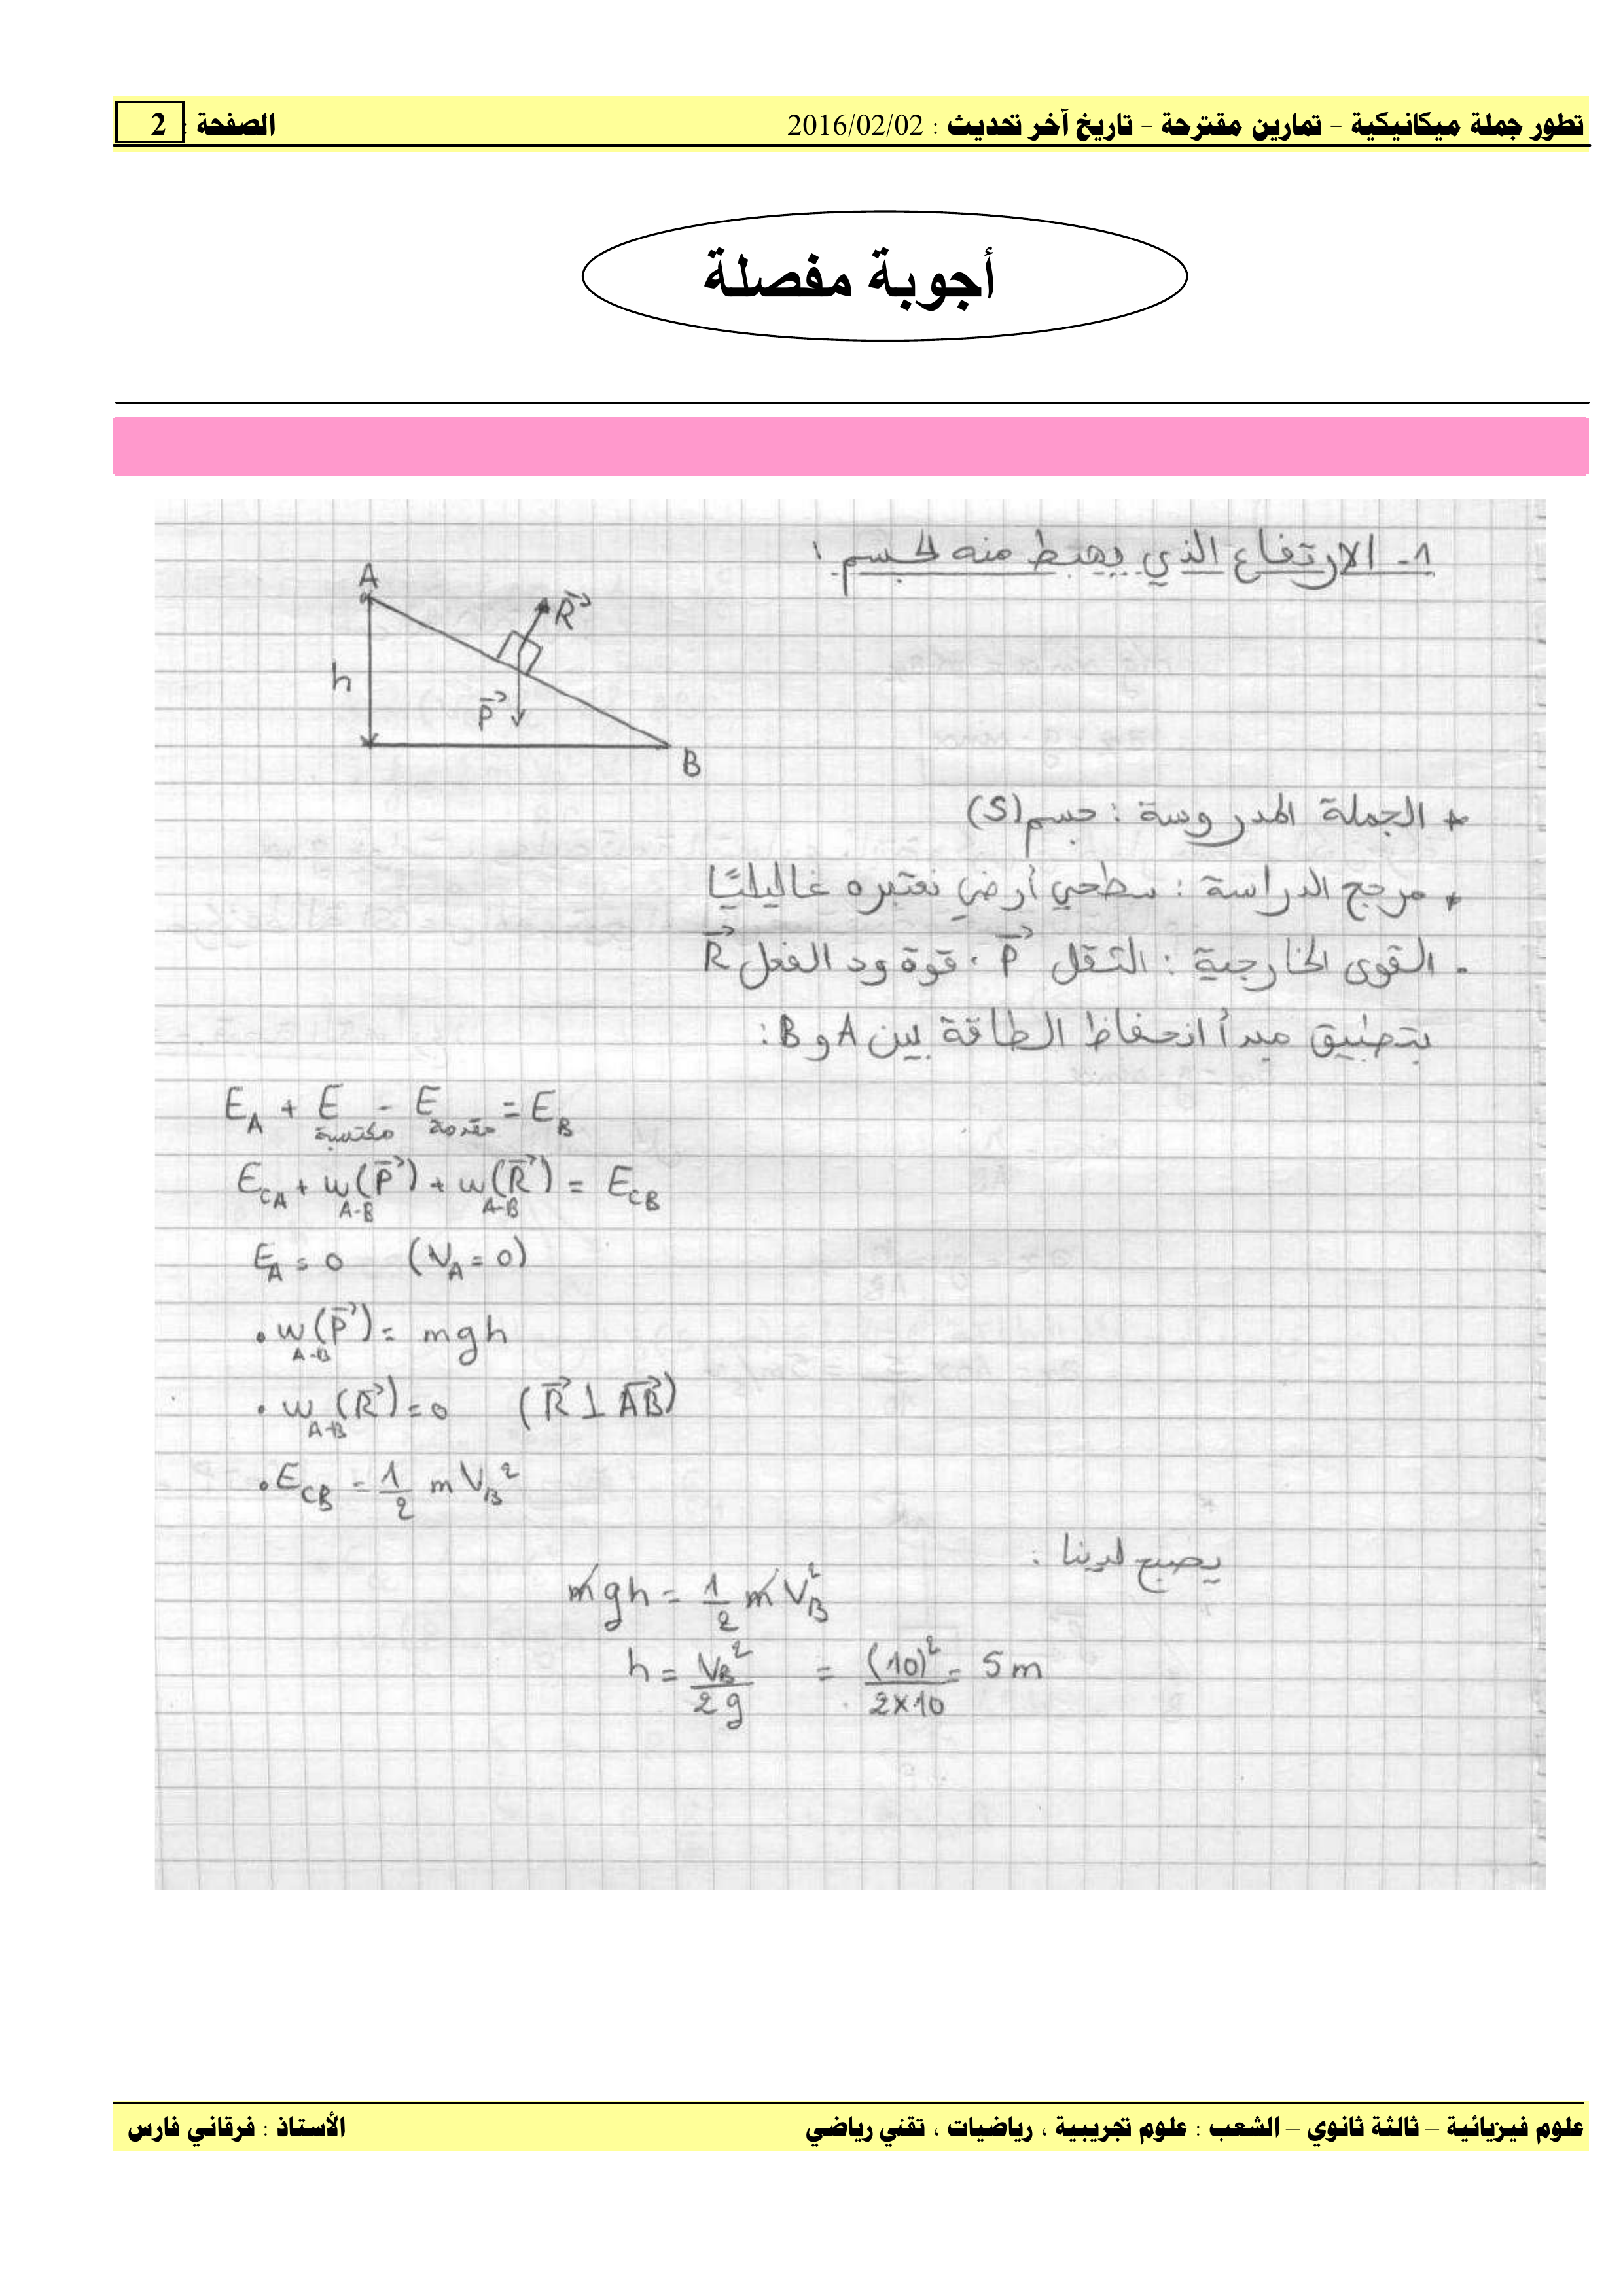 تطور جملة ميكانيكية - تمارين مقترحة - تاريخ آخر تحديث : 2016/02/02 الصفحة : 2
أجوبة مفصلة
1- الارتفاع الذي يهبط منه الجسم :
A
R⃗
h
P⃗
B
+ الجملة المدروسة : جسم (S)
+ مرجع الدراسة : سطحي أرضي نعتبره غاليليًا
. القوى الخارجية : الثقل P⃗ ، قوة رد الفعل R⃗
بتطبيق مبدأ انحفاظ الطاقة بين A و B :
E_A + E_مكتسبة - E_مقدمة = E_B
E_CA + w_A-B(P⃗) + w_A-B(R⃗) = E_CB
E_A = 0 (V_A = 0)
. w_A-B(P⃗) = mgh
. w_A-B(R⃗) = 0 (R⃗ ⊥ AB⃗)
. E_CB = 1/2 m V_B²
يصبح لدينا :
mgh = 1/2 m V_B²
h = V_B²/2g = (10)²/2×10 = 5 m
علوم فيزيائية – ثالثة ثانوي – الشعب : علوم تجريبية ، رياضيات ، تقني رياضي الأستاذ : فرقاني فارس